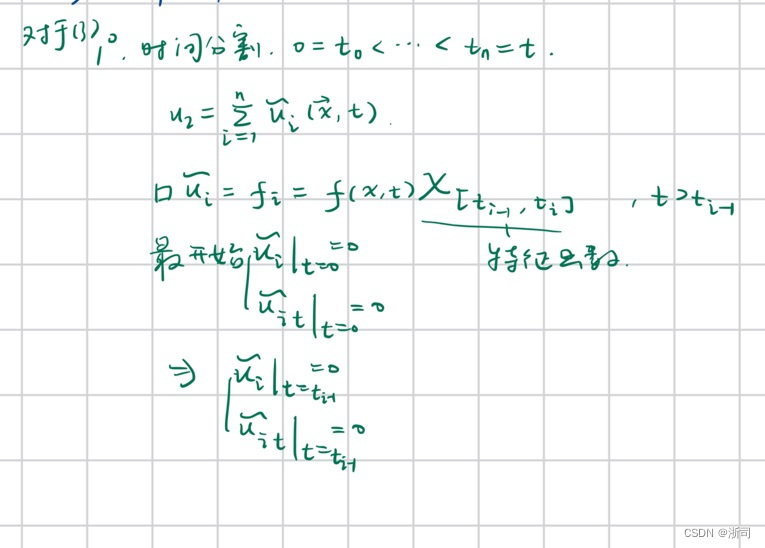 对于(3), 1°. 时间分割. 0 = t₀ < ⋯ < tₙ = t.
u₂ = ∑ᵢ₌₁ⁿ ũᵢ(x⃗, t).
□ũᵢ = fᵢ = f(x,t) χ_[tᵢ₋₁, tᵢ] , t > tᵢ₋₁
特征函数.
最开始 ũᵢ|ₜ₌₀ = 0
ũᵢₜ|ₜ₌₀ = 0
⇒ ũᵢ|_{t=tᵢ₋₁} = 0
ũᵢₜ|_{t=tᵢ₋₁} = 0
CSDN @浙司